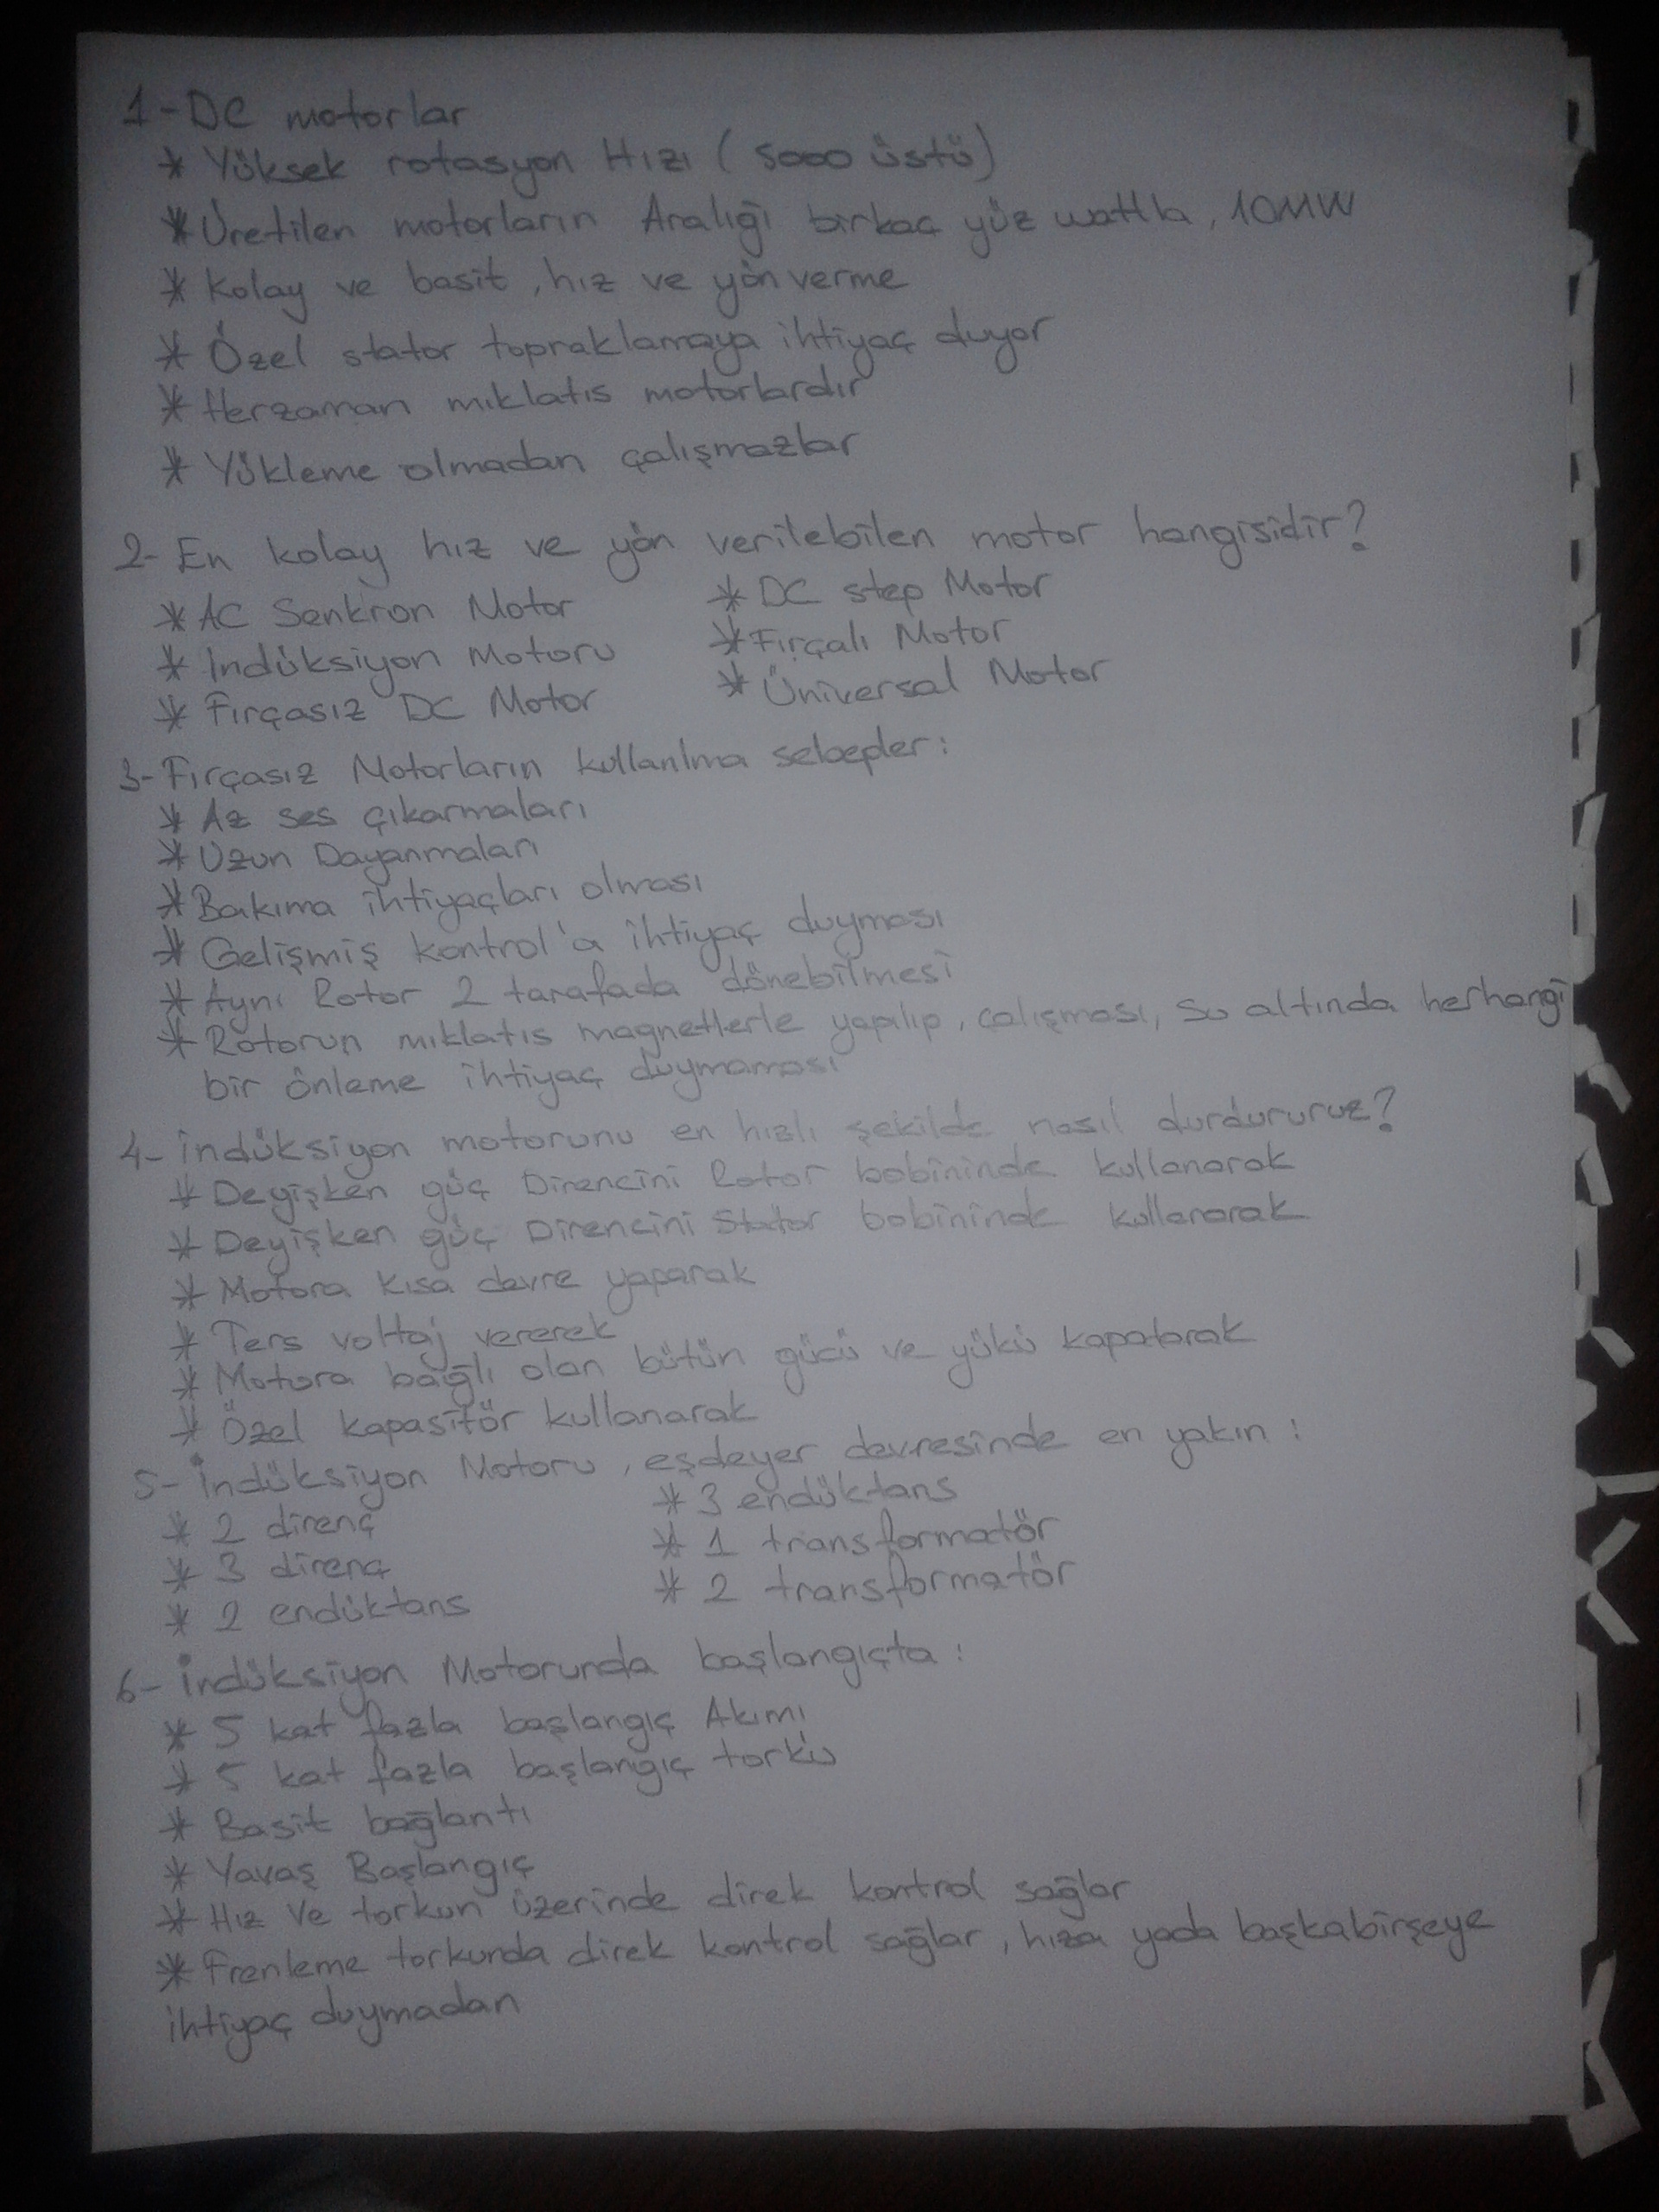 1-DC motorlar
* Yüksek rotasyon Hızı (5000 üstü)
* Üretilen motorların Aralığı birkaç yüz wattla, 10MW
* Kolay ve basit, hız ve yön verme
* Özel stator topraklamaya ihtiyaç duyor
* Herzaman mıklatıs motorlardır
* Yükleme olmadan çalışmazlar
2- En kolay hız ve yön verilebilen motor hangisidir?
* AC Senkron Motor * DC step Motor
* Indüksiyon Motoru * Fırçalı Motor
* Fırçasız DC Motor * Üniversal Motor
3- Fırçasız Motorların kullanılma sebepler:
* Az ses çıkarmaları
* Uzun Dayanmaları
* Bakıma ihtiyaçları olması
* Gelişmiş kontrol'a ihtiyaç duyması
* Aynı Rotor 2 tarafada dönebilmesi
* Rotorun mıklatıs magnetlerle yapılıp, çalışması, su altında herhangi
bir önleme ihtiyaç duymaması
4- İndüksiyon motorunu en hızlı şekilde nasıl durdururuz?
* Deyişken güç Direncini Rotor bobininde kullanarak
* Deyişken güç Direncini Stator bobininde kullanarak
* Motora kısa devre yaparak
* Ters voltaj vererek
* Motora bağlı olan bütün gücü ve yükü kapatarak
* Özel kapasitör kullanarak
5- İndüksiyon Motoru, eşdeyer devresinde en yakın:
* 2 direnç * 3 endüktans
* 3 direnç * 1 transformatör
* 2 endüktans * 2 transformatör
6- İndüksiyon Motorunda başlangıçta:
* 5 kat fazla başlangıç Akımı
* 5 kat fazla başlangıç torkü
* Basit bağlantı
* Yavaş Başlangıç
* Hız Ve torkun üzerinde direk kontrol sağlar
* Frenleme torkunda direk kontrol sağlar, hıza yada başkabirşeye
ihtiyaç duymadan